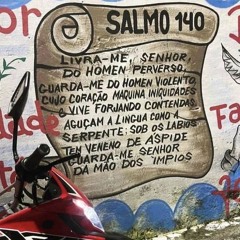 SALMO 140
LIVRA-ME, SENHOR,
DO HOMEN PERVERSO,
GUARDA-ME DO HOMEN VIOLENTO,
CUJO CORAÇÃO MAQUINA INIQUIDADES
E VIVE FORJANDO CONTENDAS.
AGUÇAM A LINGUA COMO A
SERPENTE; SOB OS LABIOS
TEN VENENO DE ASPIDE
GUARDA-ME SENHOR
DA MÃO DOS IMPIOS
or
dade
Fa